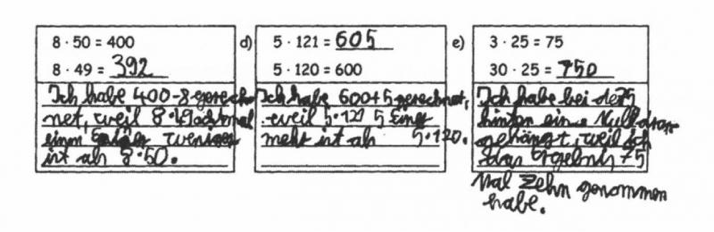 8 · 50 = 400
8 · 49 = 392
Ich habe 400-8 gerech
net, weil 8·49 achtmal
einen weniger
ist als 8·50.
d) 5 · 121 = 605
5 · 120 = 600
Ich habe 600+5 gerechnet,
weil 5·121 5 Einer
mehr ist als 5·120.
e) 3 · 25 = 75
30 · 25 = 750
Ich habe bei der 75
hinten eine Null dran
gehängt, weil ich
das Ergebnis 75
mal zehn genommen
habe.